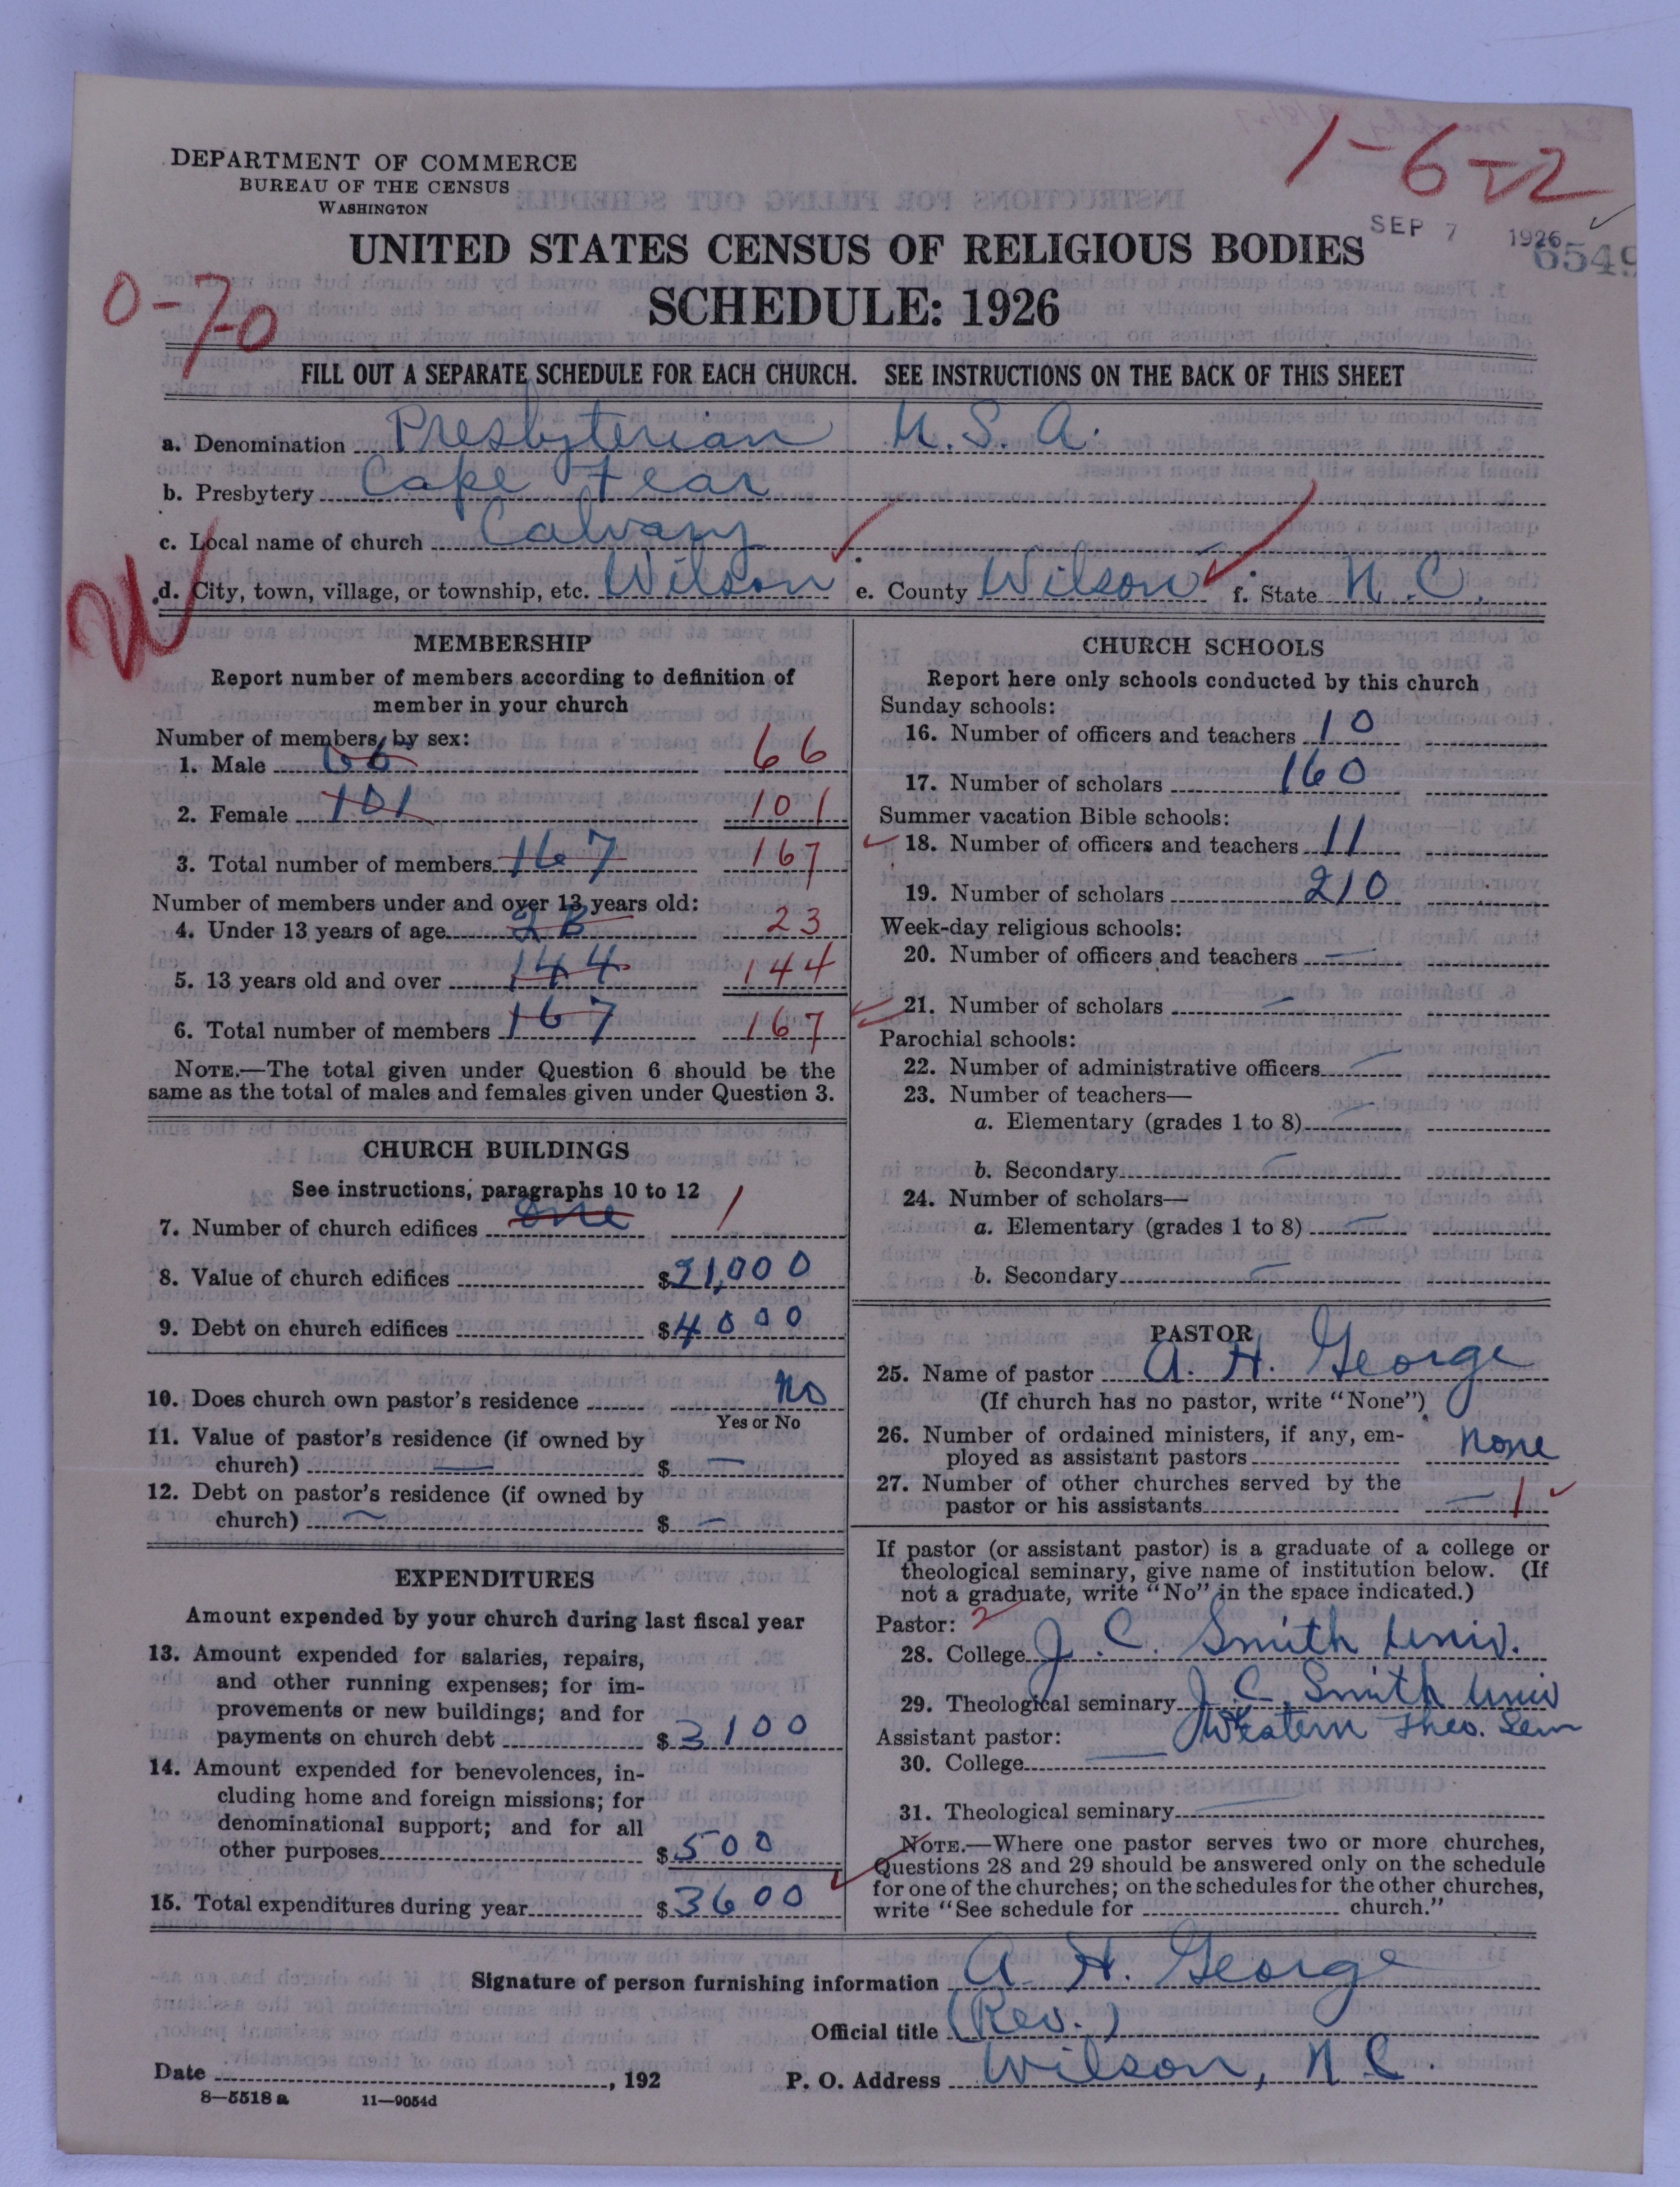 1-6-22
DEPARTMENT OF COMMERCE
BUREAU OF THE CENSUS
WASHINGTON
SEP 7 1926
6549
UNITED STATES CENSUS OF RELIGIOUS BODIES
SCHEDULE: 1926
0-70
FILL OUT A SEPARATE SCHEDULE FOR EACH CHURCH. SEE INSTRUCTIONS ON THE BACK OF THIS SHEET
a. Denomination Presbyterian U.S.A.
b. Presbytery Cape Fear
c. Local name of church Calvary
d. City, town, village, or township, etc. Wilson e. County Wilson f. State N.C.
MEMBERSHIP
Report number of members according to definition of
member in your church
Number of members, by sex:
1. Male 66 66
2. Female 101 101
3. Total number of members 167 167
Number of members under and over 13 years old:
4. Under 13 years of age 23 23
5. 13 years old and over 144 144
6. Total number of members 167 167
NOTE.—The total given under Question 6 should be the
same as the total of males and females given under Question 3.
CHURCH BUILDINGS
See instructions, paragraphs 10 to 12
7. Number of church edifices one 1
8. Value of church edifices $21,000
9. Debt on church edifices $4000
10. Does church own pastor's residence No
Yes or No
11. Value of pastor's residence (if owned by
church) — $ —
12. Debt on pastor's residence (if owned by
church) — $ —
EXPENDITURES
Amount expended by your church during last fiscal year
13. Amount expended for salaries, repairs,
and other running expenses; for im-
provements or new buildings; and for
payments on church debt $3100
14. Amount expended for benevolences, in-
cluding home and foreign missions; for
denominational support; and for all
other purposes $500
15. Total expenditures during year $3600
CHURCH SCHOOLS
Report here only schools conducted by this church
Sunday schools:
16. Number of officers and teachers 10
17. Number of scholars 160
Summer vacation Bible schools:
18. Number of officers and teachers 11
19. Number of scholars 210
Week-day religious schools:
20. Number of officers and teachers —
21. Number of scholars —
Parochial schools:
22. Number of administrative officers —
23. Number of teachers—
a. Elementary (grades 1 to 8) —
b. Secondary —
24. Number of scholars—
a. Elementary (grades 1 to 8) —
b. Secondary —
PASTOR
25. Name of pastor A. H. George
(If church has no pastor, write "None")
26. Number of ordained ministers, if any, em-
ployed as assistant pastors None
27. Number of other churches served by the
pastor or his assistants — 1
If pastor (or assistant pastor) is a graduate of a college or
theological seminary, give name of institution below. (If
not a graduate, write "No" in the space indicated.)
Pastor: 2
28. College J. C. Smith Univ.
29. Theological seminary J. C. Smith Univ
Western Theo. Sem
Assistant pastor:
30. College —
31. Theological seminary —
NOTE.—Where one pastor serves two or more churches,
Questions 28 and 29 should be answered only on the schedule
for one of the churches; on the schedules for the other churches,
write "See schedule for church."
Signature of person furnishing information A. H. George
Official title (Rev.)
Date , 192 P. O. Address Wilson, N.C.
8—5518 a 11—9054d